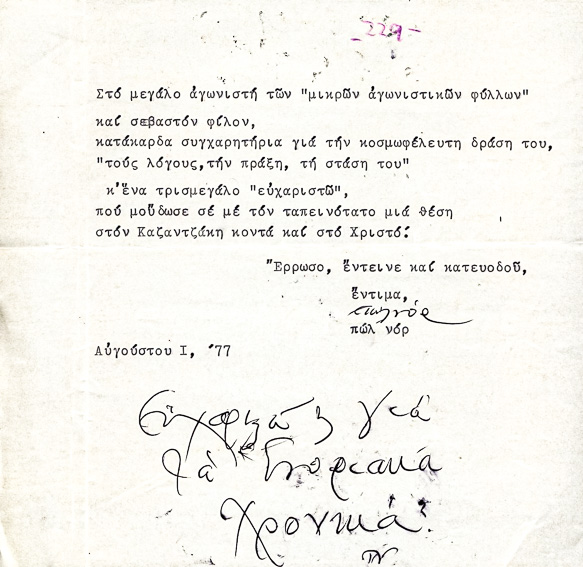 -229-
Στό μεγάλο ἀγωνιστή τῶν "μικρῶν ἀγωνιστικῶν φύλλων"
καί σεβαστόν φίλον,
κατάκαρδα συγχαρητήρια γιά τήν κοσμωφέλευτη δράση του,
"τούς λόγους,τήν πράξη, τή στάση του"
κ'ἕνα τρισμεγάλο "εὐχαριστῶ",
πού μοὔδωσε σέ μέ τόν ταπεινότατο μιά θέση
στόν Καζαντζάκη κοντά καί στό Χριστό!
Ἔρρωσο, ἔντεινε καί κατευοδοῦ,
ἔντιμα,
πώλ νόρ
Αὐγούστου Ι, '77
γιά
τά
Χρονικά.